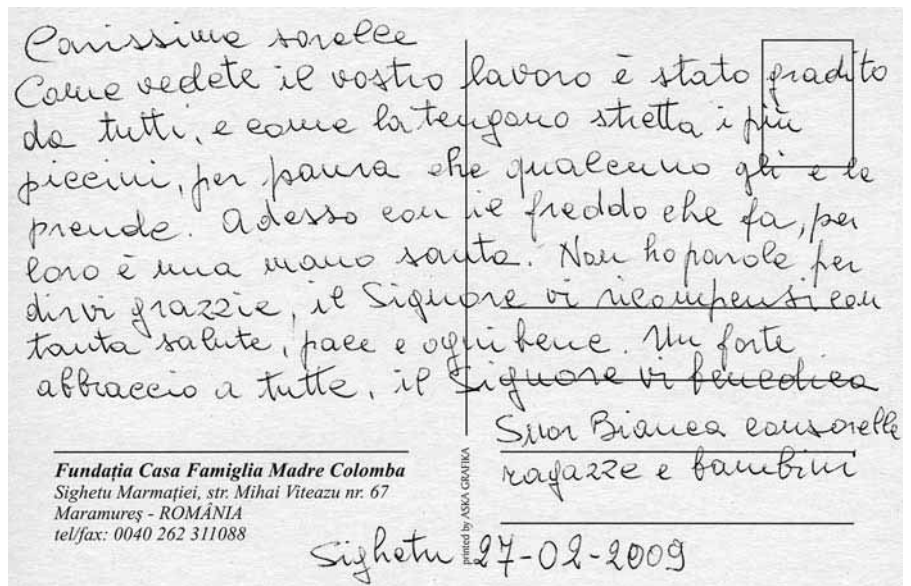 Carissime sorelle
Come vedete il vostro lavoro è stato gradito
da tutti, e come la tengono stretta i più
piccini, per paura che qualcuno gli e le
prende. Adesso con il freddo che fa, per
loro è una mano santa. Non ho parole per
dirvi grazzie, il Signore vi ricompensi con
tanta salute, pace e ogni bene. Un forte
abbraccio a tutte, il Signore vi benedica
Suor Bianca consorelle
ragazze e bambini
Fundația Casa Famiglia Madre Colomba
Sighetu Marmației, str. Mihai Viteazu nr. 67
Maramureș - ROMÂNIA
tel/fax: 0040 262 311088
printed by ASKA GRAFIKA
Sighetu 27-02-2009